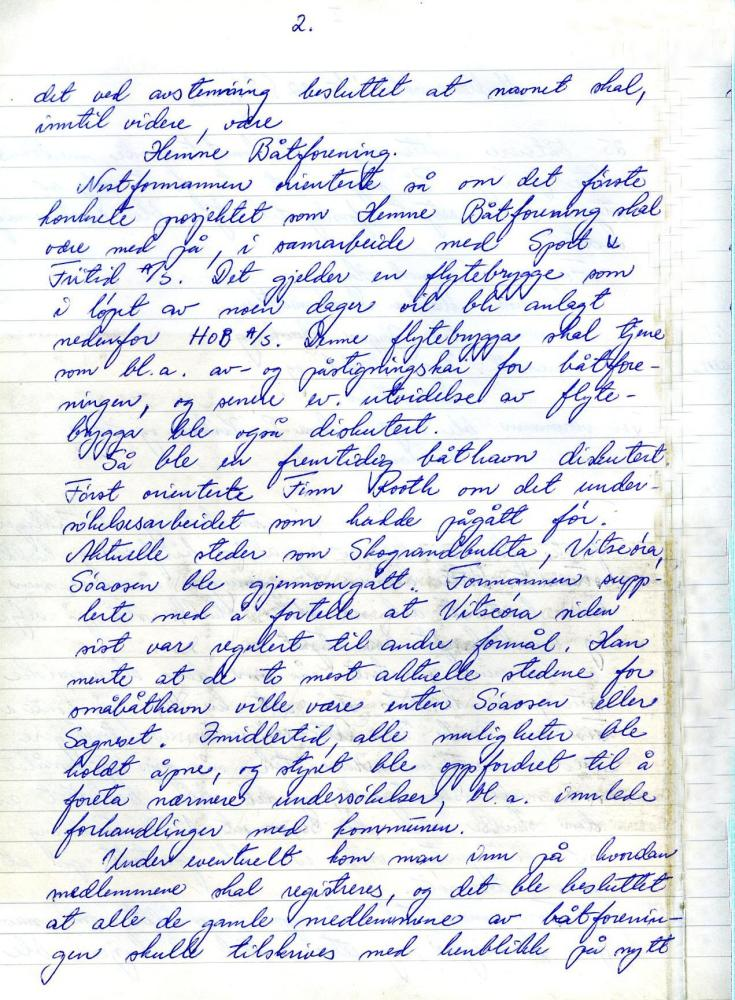 2.
det ved avstemning besluttet at navnet skal,
inntil videre, være
Hemne Båtforening.
Nestformannen orienterte så om det første
konkrete prosjektet som Hemne Båtforening skal
være med på, i samarbeide med Sport &
Fritid A/S. Det gjelder en flytebrygge som
i løpet av noen dager vil bli anlagt
nedenfor HOB A/S. Denne flytebrygga skal tjene
som bl.a. av- og påstigningskai for båtfore-
ningen, og senere ev. utvidelse av flyte-
brygga ble også diskutert.
Så ble en fremtidig båthavn diskutert.
Først orienterte Finn Rooth om det under-
søkelsesarbeidet som hadde pågått før.
Aktuelle steder som Skograndbukta, Vitseøra,
Søaosen ble gjennomgått. Formannen supp-
lerte med å fortelle at Vitseøra siden
sist var regulert til andre formål. Han
mente at de to mest aktuelle stedene for
småbåthavn ville være enten Søaosen eller
Sagneset. Imidlertid, alle muligheter ble
holdt åpne, og styret ble oppfordret til å
foreta nærmere undersøkelser, bl.a. innlede
forhandlinger med kommunen.
Under eventuelt kom man inn på hvordan
medlemmene skal registreres, og det ble besluttet
at alle de gamle medlemmene av båtforenin-
gen skulle tilskrives med henblikk på nytt